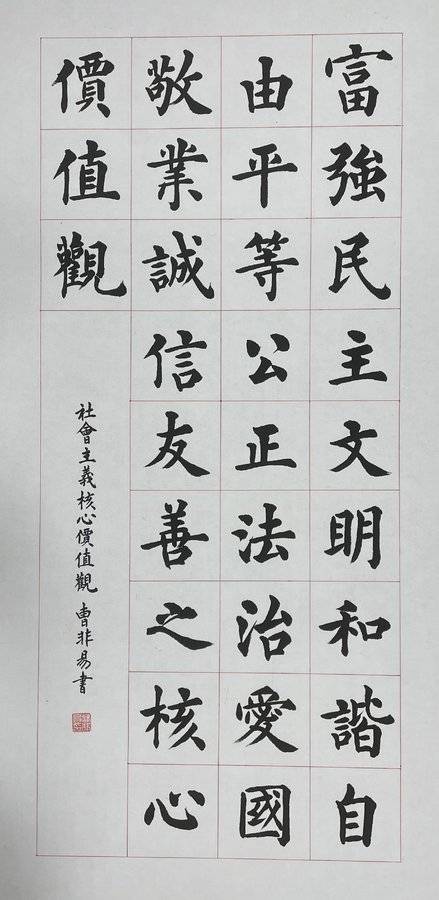 富強民主文明和諧自
由平等公正法治愛國
敬業誠信友善之核心
價值觀
社會主義核心價值觀 曹非易書